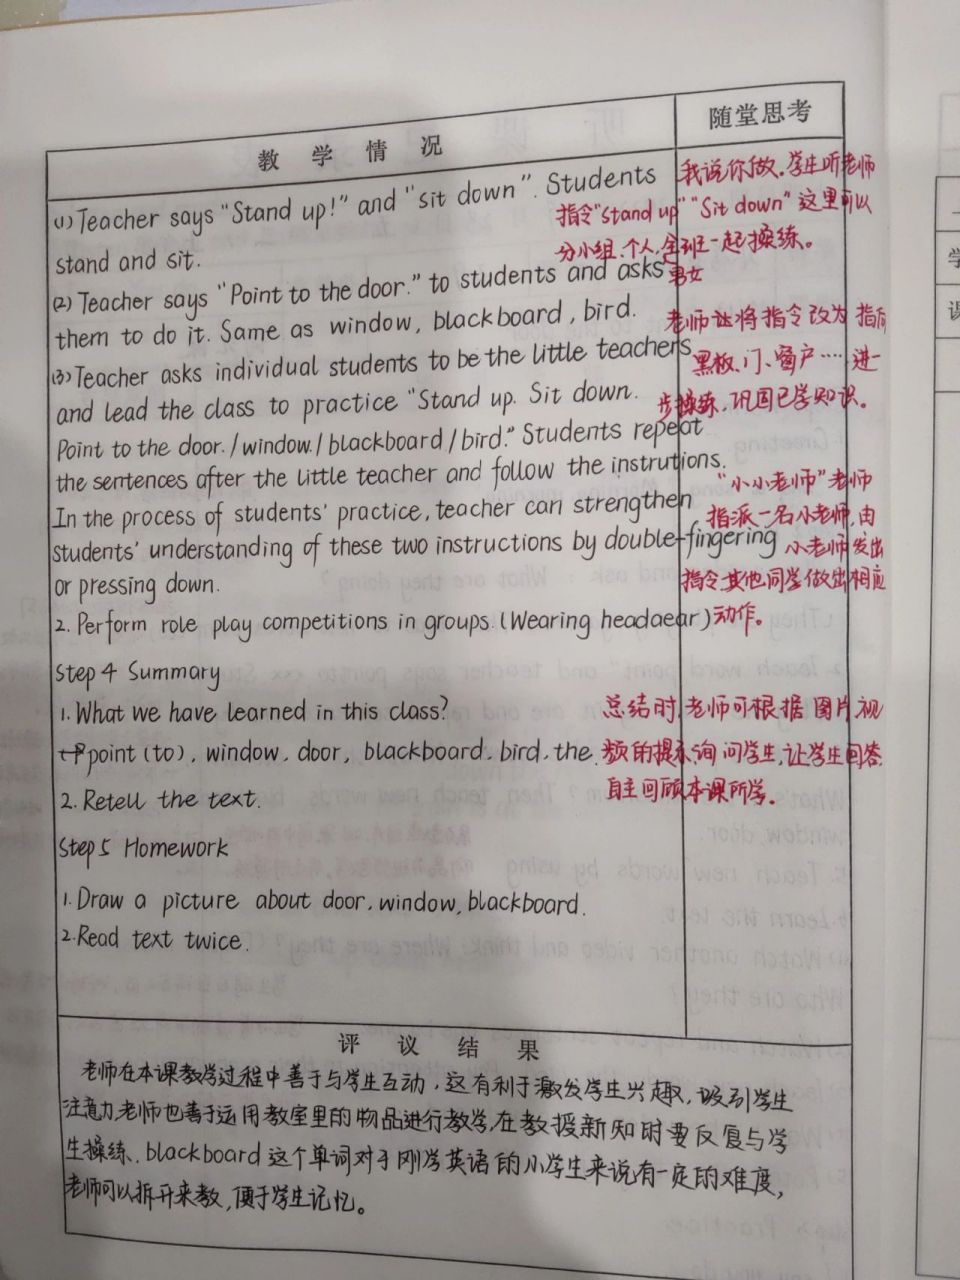 教 学 情 况
随堂思考
(1) Teacher says "Stand up!" and "sit down". Students
stand and sit.
(2) Teacher says "Point to the door." to students and asks
them to do it. Same as window, blackboard, bird.
(3) Teacher asks individual students to be the little teachers
and lead the class to practice "Stand up. Sit down.
Point to the door. / window. / blackboard / bird." Students repeat
the sentences after the little teacher and follow the instrutions.
In the process of students' practice, teacher can strengthen
students' understanding of these two instructions by double-fingering
or pressing down.
2. Perform role play competitions in groups. (Wearing headaear)
Step 4 Summary
1. What we have learned in this class?
point (to), window, door, blackboard, bird, the.
2. Retell the text.
Step 5 Homework
1. Draw a picture about door, window, blackboard.
2. Read text twice.
我说你做.学生听老师
指令"stand up" "Sit down" 这里可以
分小组、个人、全班一起操练。
男女
老师让将指令改为 指向
黑板、门、窗户……进一
步操练,巩固已学知识。
"小小老师"老师
指派一名小老师,由
小老师发出
指令其他同学做出相应
动作。
总结时,老师可根据图片视
频的提示询问学生,让学生回答
自主回顾本课所学。
评 议 结 果
老师在本课教学过程中善于与学生互动,这有利于激发学生兴趣,吸引学生
注意力,老师也善于运用教室里的物品进行教学,在教授新知时要反复与学
生操练、blackboard 这个单词对于刚学英语的小学生来说有一定的难度,
老师可以拆开来教,便于学生记忆。